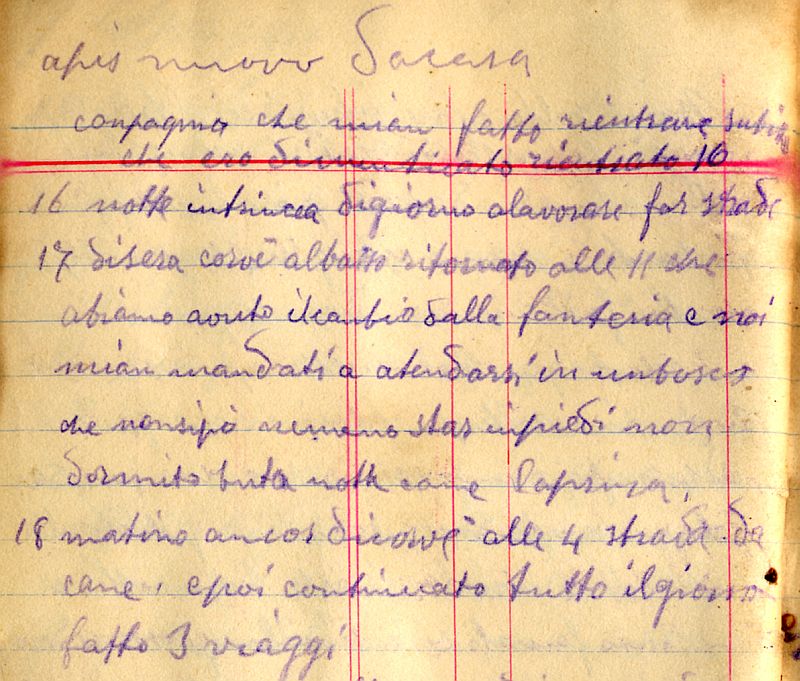 apis nuovo da casa
conpagnia che mian fatto rientrare subito
che ero dimenticato rientrato 16
16 notte intrincea digiorno alavorare far strade
17 disera corvè albatto ritornato alle 11 che
abiamo aouto ilcanbio dalla fanteria e noi
mian mandati a atendarsi in unbosco
che nonsipò nemeno star inpiedi non
dormito tuta notte come laprima,
18 matino ancor dicorvè alle 4 strada da
cane, e poi continuato tutto ilgiorno
fatto 3 viaggi